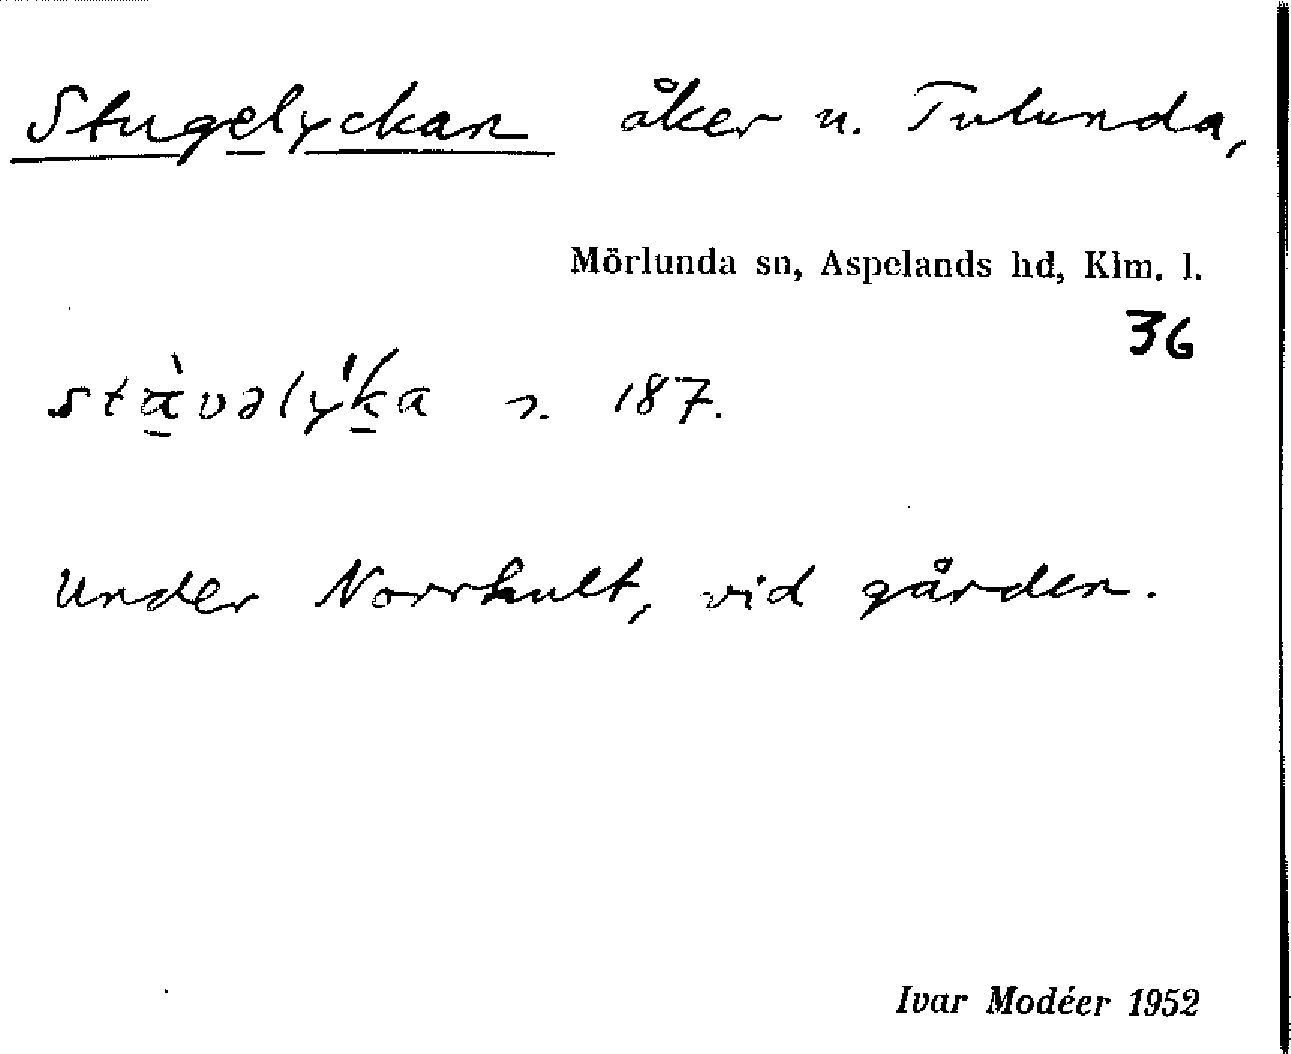 Stugelyckan åker u. Tulunda,
Mörlunda sn, Aspelands hd, Klm. l.
36
s. 187.
Under Norrhult, vid gården.
Ivar Modéer 1952